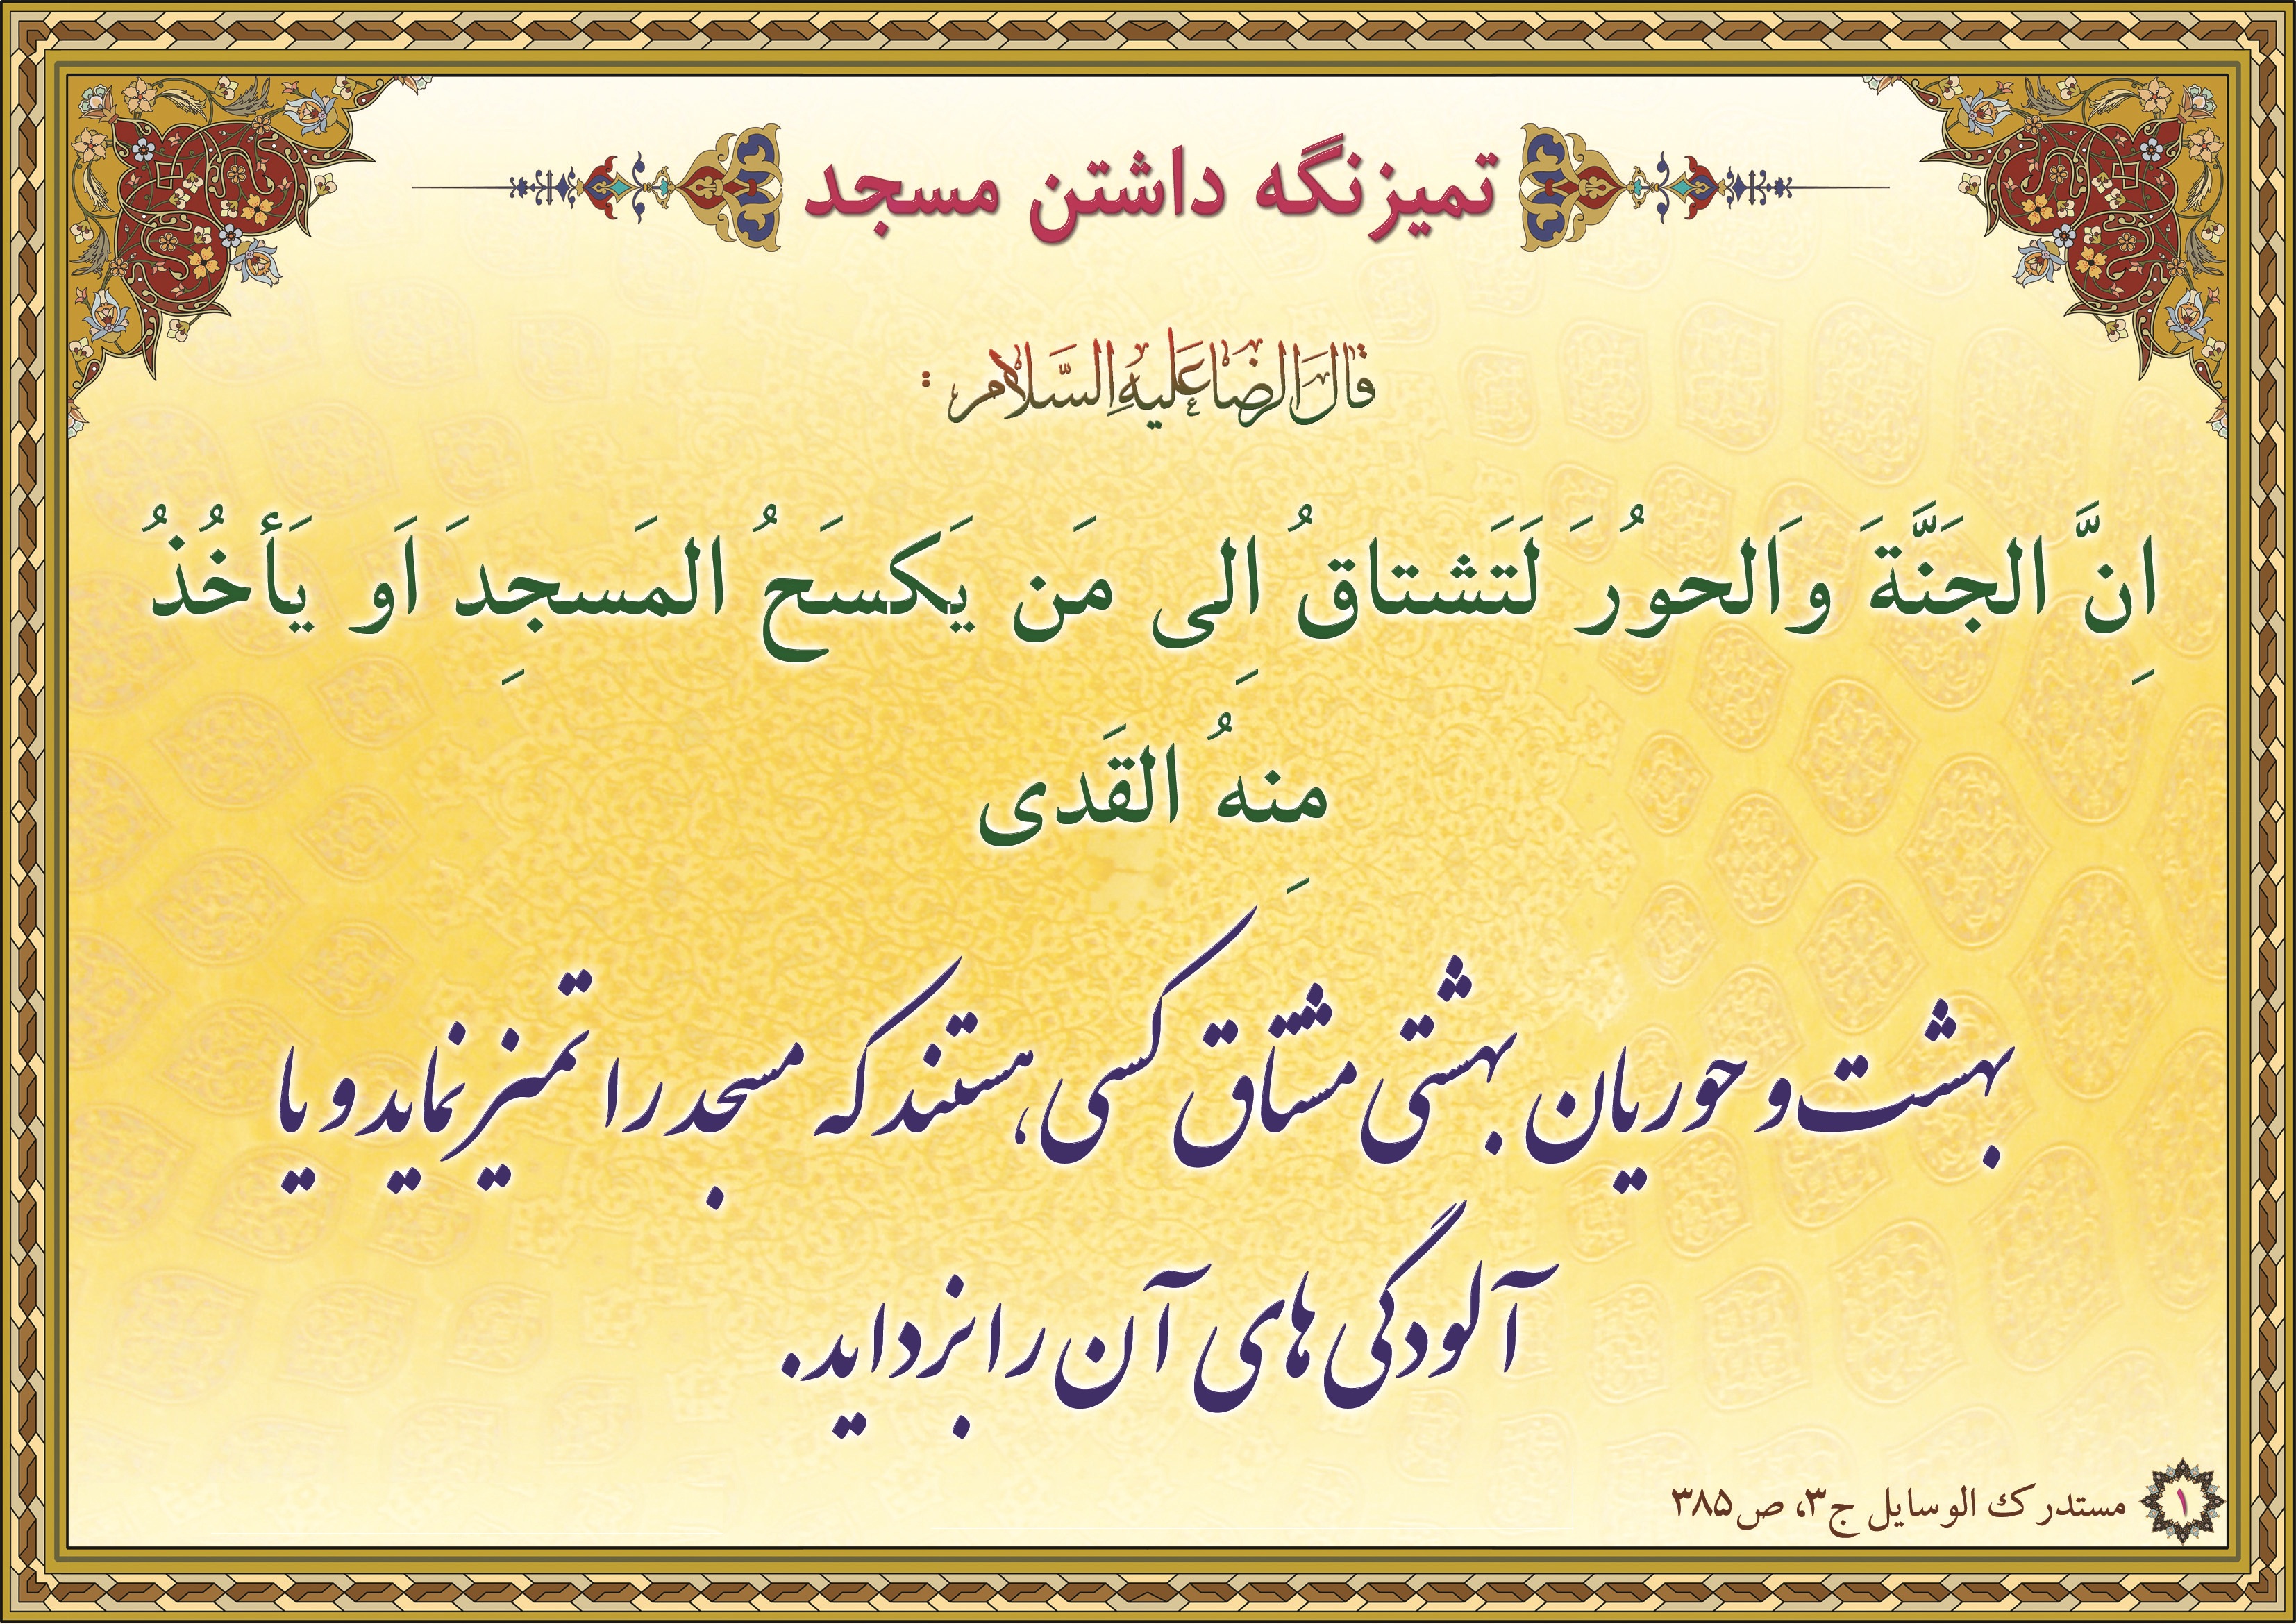 تمیز نگه داشتن مسجد
قالَ الرضا عَلیهِ السَّلام :
اِنَّ الجَنَّةَ وَالحورُ َ لَتَشتاقُ اِلی مَن یَکسَحُ المَسجِدَ اَو یَأخُذُ
مِنهُ القَدی
بهشت و حوریان بهشتی مشتاق کسی هستند که مسجد را تمیز نماید و یا
آلودگی های آن را بزداید.
۱ مستدرک الوسایل ج۳، ص۳۸۵